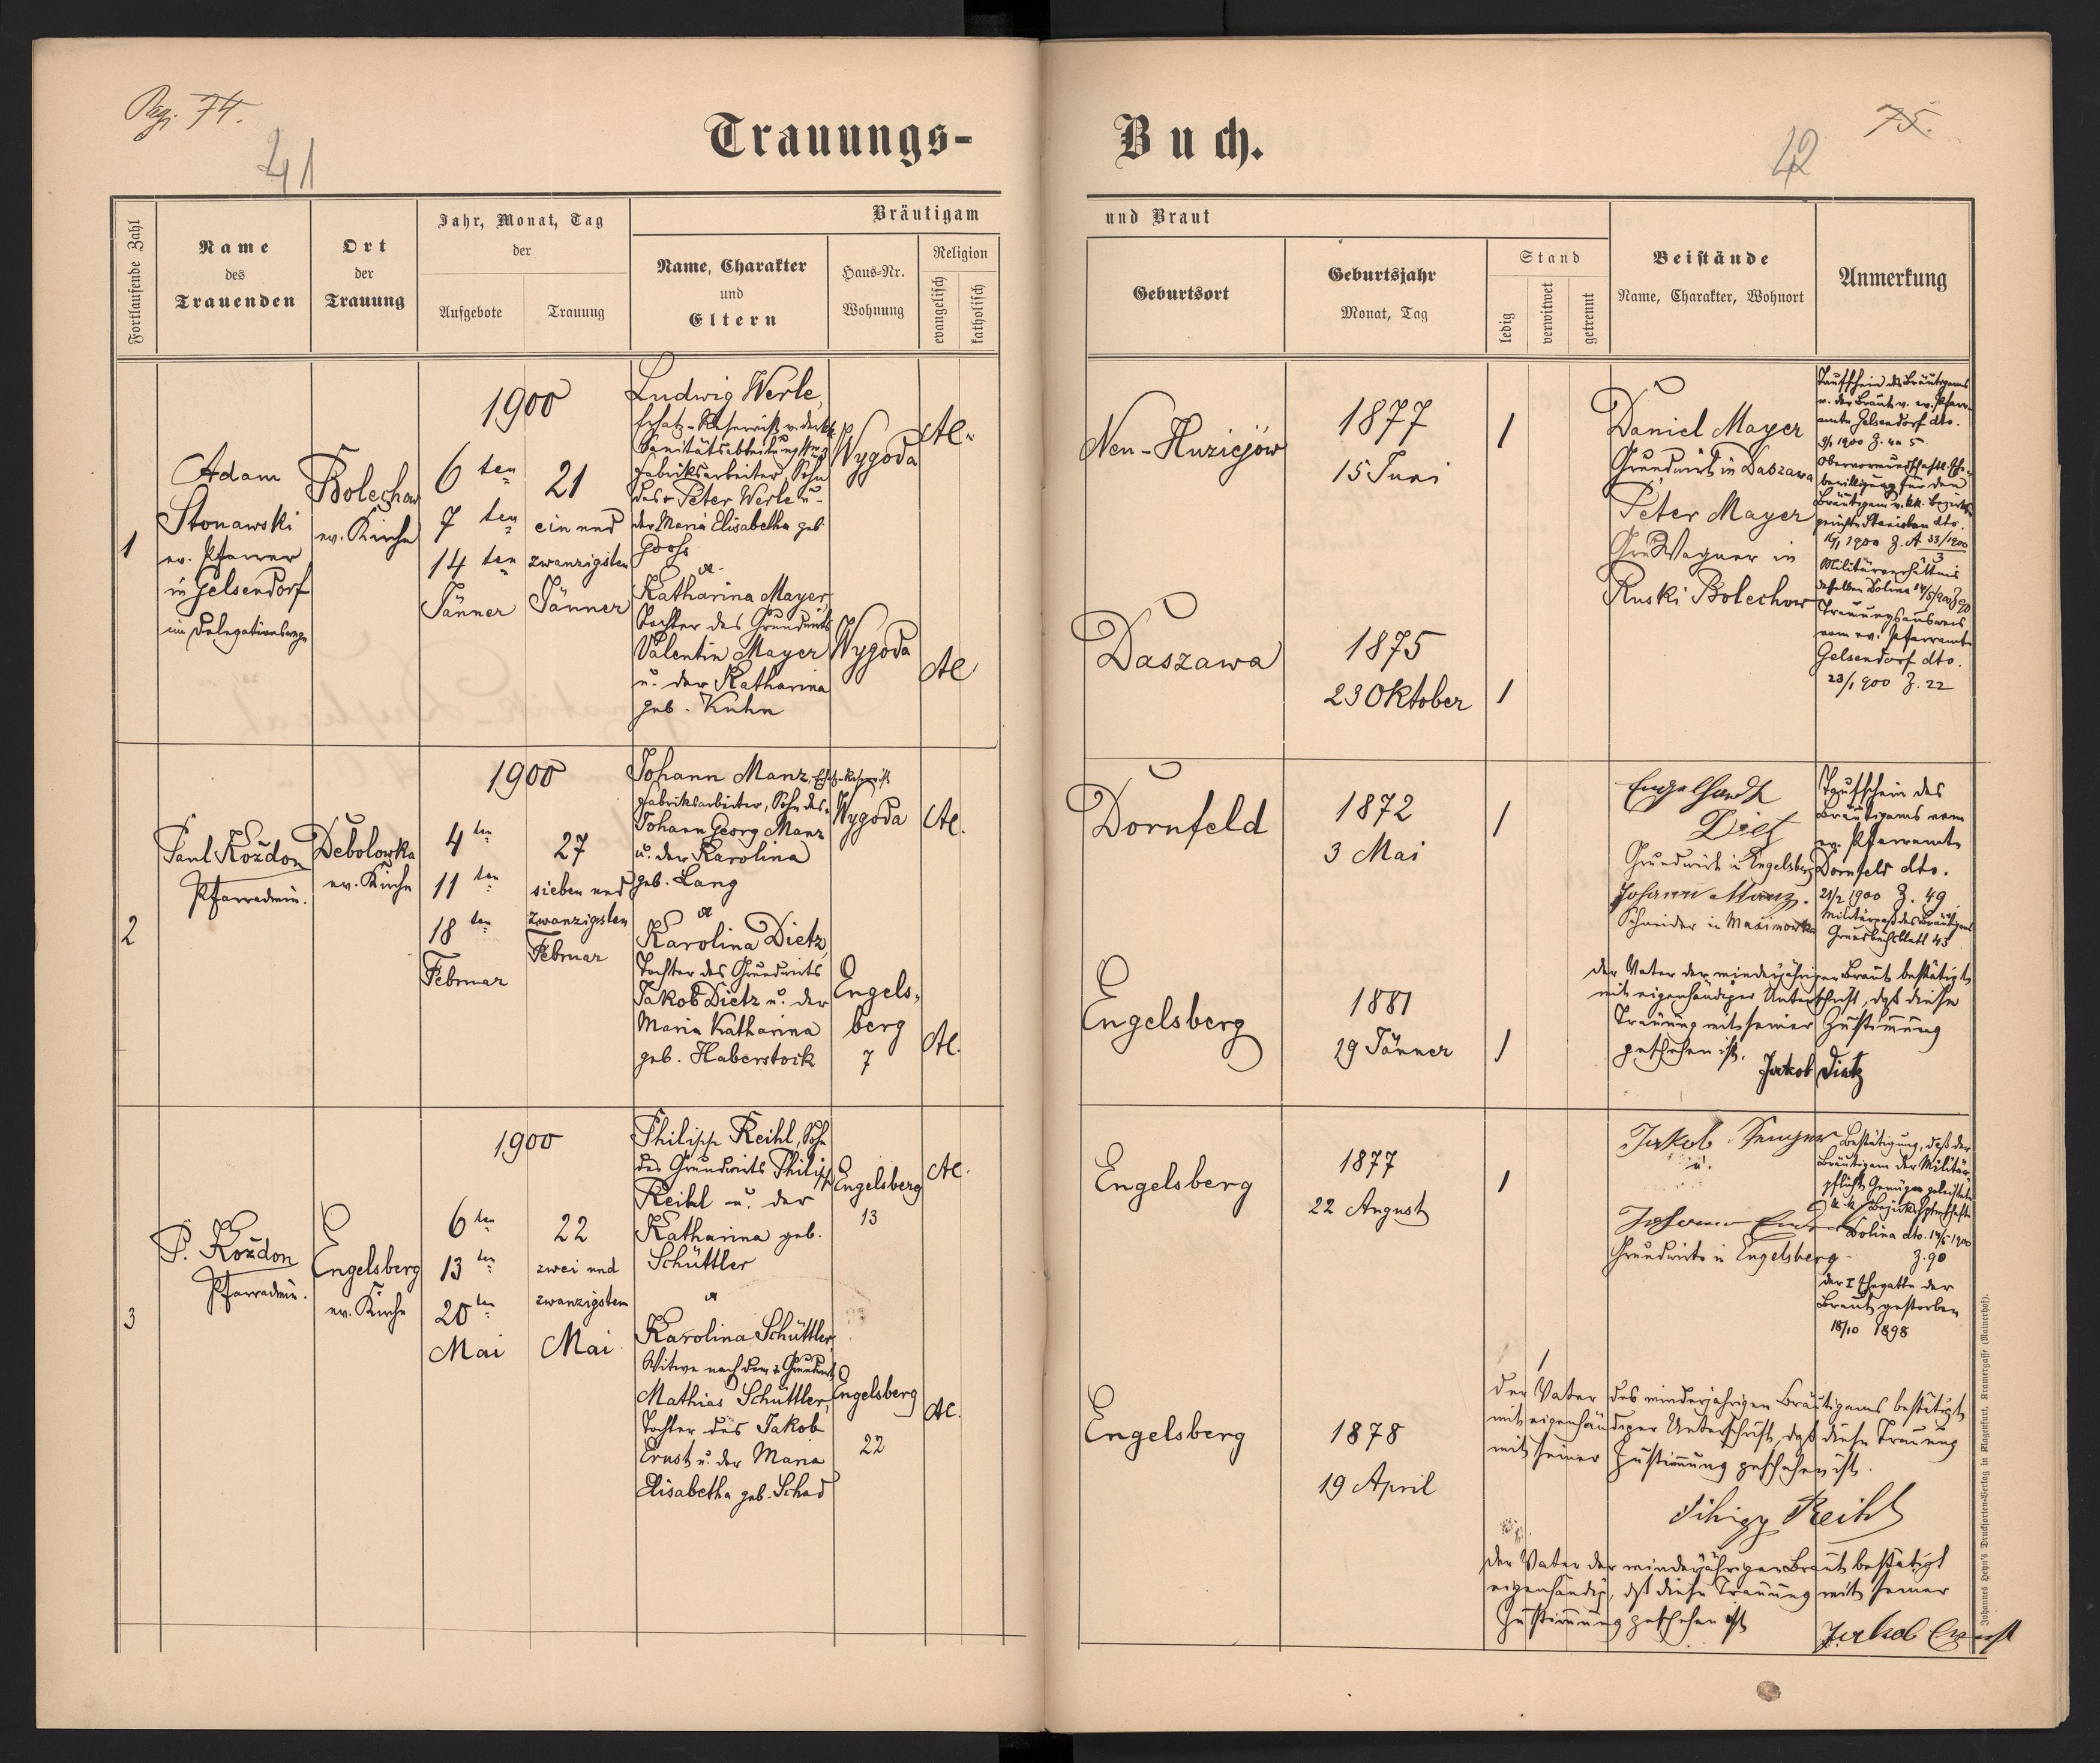 Pag. 74.
41
Trauungs-
Fortlaufende Zahl
Name
des
Trauenden
Ort
der
Trauung
Jahr, Monat, Tag
der
Aufgebote
Trauung
Bräutigam
Name, Charakter
und
Eltern
Haus-Nr.
Wohnung
Religion
evangelisch
katholisch
1
Adam
Stonawski
ev. Pfarrer
in Gelsendorf
im Delegationswege
Bolechow
ev. Kirche
1900
6 ten
7 ten
14 ten
Jänner
21
ein und
zwanzigsten
Jänner
Ludwig Werle,
Ersatz-Reservist v. der k.k.
Sanitätsabteilung
Fabriksarbeiter, Sohn
des + Peter Werle u.
der Maria Elisabetha geb.
Wygoda
AC.
Katharina Mayer
Tochter des Grundwirts
Valentin Mayer
u. der Katharina
geb. Kuhn
Wygoda
AC
2
Paul Kożdon
Pfarradmin.
Debolowka
ev. Kirche
1900
4 ten
11 ten
18 ten
Februar
27
sieben und
zwanzigsten
Februar
Johann Manz, Ersatz-Reservist
Fabriksarbeiter, Sohn des
Johann Georg Manz
u. der Karolina
geb. Lang
Wygoda
AC.
Karolina Dietz,
Tochter des Grundwirts
Jakob Dietz u. der
Maria Katharina
geb. Haberstock
Engels-
berg
7
AC.
3
P. Kożdon
Pfarradmin.
Engelsberg
ev. Kirche
1900
6 ten
13 ten
20 ten
Mai
22
zwei und
zwanzigsten
Mai
Philipp Reihl, Sohn
des Grundwirts Philipp
Reihl u. der
Katharina geb.
Schüttler
Engelsberg
13
AC.
Karolina Schüttler,
Witwe nach dem + Grundwirt
Mathias Schüttler,
Tochter des Jakob
Ernst u. der Maria
Elisabetha geb. Schad
Engelsberg
22
AC.
75.
42
Buch.
und Braut
Geburtsort
Geburtsjahr
Monat, Tag
Stand
ledig
verwitwet
getrennt
Beistände
Name, Charakter, Wohnort
Anmerkung
Neu-Huziejów
1877
15 Juni
1
Daszawa
1875
23 Oktober
1
Daniel Mayer
Grundwirt in Daszawa
Peter Mayer
Wagner in
Ruski Bolechow
Taufschein des Bräutigams
u. der Braut v. ev. Pfarr-
amte Gelsendorf dto.
9/1 1900 Z. 4 u 5.
Obervormundschaftl. Ehe-
bewilligung für den
Bräutigam v. k.k. Bezirks-
gericht dto.
16/1 1900 Z. A 33/1900
3
Militärverhältnis
desselben Dolina
Trauungsausweis
vom ev. Pfarramte
Gelsendorf dto.
23/1 900 Z. 22
Dornfeld
1872
3 Mai
1
Engelsberg
1881
29 Jänner
1
Engelhardt
Dietz
Grundwirt in Engelsberg
Johann Manz.
Schneider in Maximowka
Taufschein des
Bräutigams vom
ev. Pfarramte
Dornfeld dto.
21/2 1900 Z. 49
Militärpaß des Bräutigams
Grundbuchsblatt 43
der Vater der minderjährigen Braut bestätigt
mit eigenhändiger Unterschrift, daß diese
Trauung mit seiner Zustimmung
geschehen ist. Jakob Dietz
Engelsberg
1877
22 August
1
Engelsberg
1878
19 April
1
Jakob
u.
Johann
Grundwirte in Engelsberg
Bestätigung, daß der
Bräutigam der Militär-
pflicht Genüge geleistet
k.k. Bezirkshptmschaft
Dolina dto. 14/5 1900
Z. 90
der I Ehegatte der
Braut gestorben
18/10 1898
der Vater des minderjährigen Bräutigams bestätigt
mit eigenhändiger Unterschrift, daß diese Trauung
mit seiner Zustimmung geschehen ist.
Reihl
der Vater der minderjährigen Braut bestätigt
eigenhändig, daß diese Trauung mit seiner
Zustimmung geschehen ist
Jakob Ernst
Johannes Heyn's Drucksorten-Verlag in Klagenfurt, Kramergasse (Rainerhof).